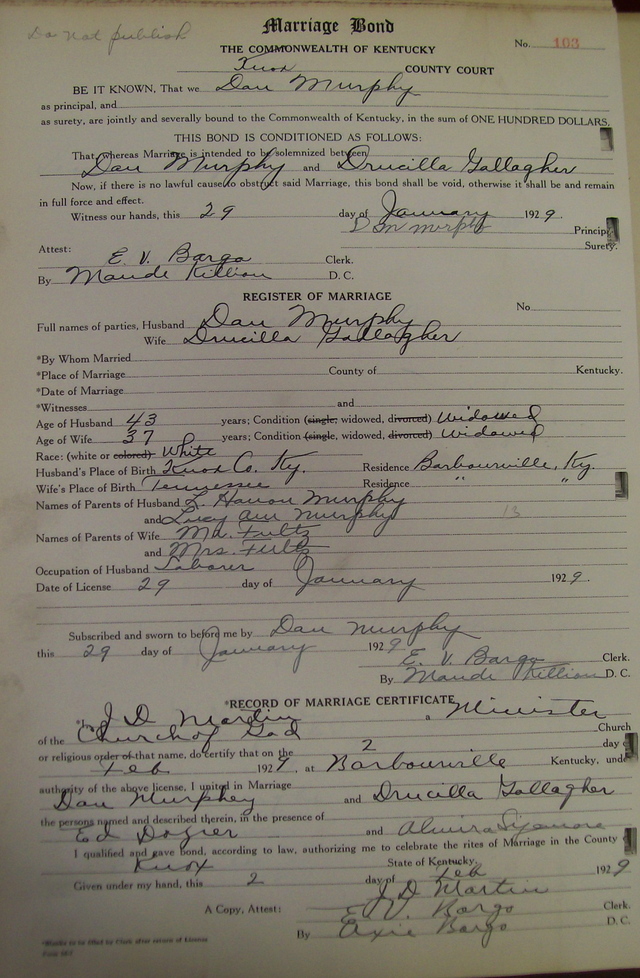 Do not publish
Marriage Bond
THE COMMONWEALTH OF KENTUCKY
No. 103
Knox COUNTY COURT
BE IT KNOWN, That we Dan Murphy
as principal, and
as surety, are jointly and severally bound to the Commonwealth of Kentucky, in the sum of ONE HUNDRED DOLLARS.
THIS BOND IS CONDITIONED AS FOLLOWS:
That, whereas Marriage is intended to be solemnized between
Dan Murphy and Drucilla Gallagher
Now, if there is no lawful cause to obstruct said Marriage, this bond shall be void, otherwise it shall be and remain
in full force and effect.
Witness our hands, this 29 day of January 1929
Dan Murphy Princip
Surety.
Attest:
E. V. Bargo Clerk.
By Maude Killion D. C.
REGISTER OF MARRIAGE
No
Full names of parties, Husband Dan Murphy
Wife Drucilla Gallagher
*By Whom Married
*Place of Marriage County of Kentucky.
*Date of Marriage
*Witnesses and
Age of Husband 43 years; Condition (single, widowed, divorced) Widowed
Age of Wife 37 years; Condition (single, widowed, divorced) Widowed
Race: (white or colored) White
Husband's Place of Birth Knox Co. Ky. Residence Barbourville, Ky.
Wife's Place of Birth Tennessee Residence " "
Names of Parents of Husband Murphy
and Lucy Ann Murphy 13
Names of Parents of Wife Fultz
and Mrs. Fultz
Occupation of Husband Laborer
Date of License 29 day of January 1929.
Subscribed and sworn to before me by Dan Murphy
this 29 day of January 1929
E. V. Bargo Clerk.
By Maude Killion D. C.
*RECORD OF MARRIAGE CERTIFICATE
*I, J D Martin a Minister
of the Church of God Church
or religious order of that name, do certify that on the 2 day o
Feb 1929, at Barbourville Kentucky, unde
authority of the above license, I united in Marriage
Dan Murphey and Drucilla Gallagher
the persons named and described therein, in the presence of
Ed Dozier and Almira
I qualified and gave bond, according to law, authorizing me to celebrate the rites of Marriage in the County
Knox State of Kentucky.
Given under my hand, this 2 day of Feb 1929
J D Martin
A Copy, Attest: E. V. Bargo Clerk.
By Bargo D. C.
*Blanks to be filled by Clerk after return of License